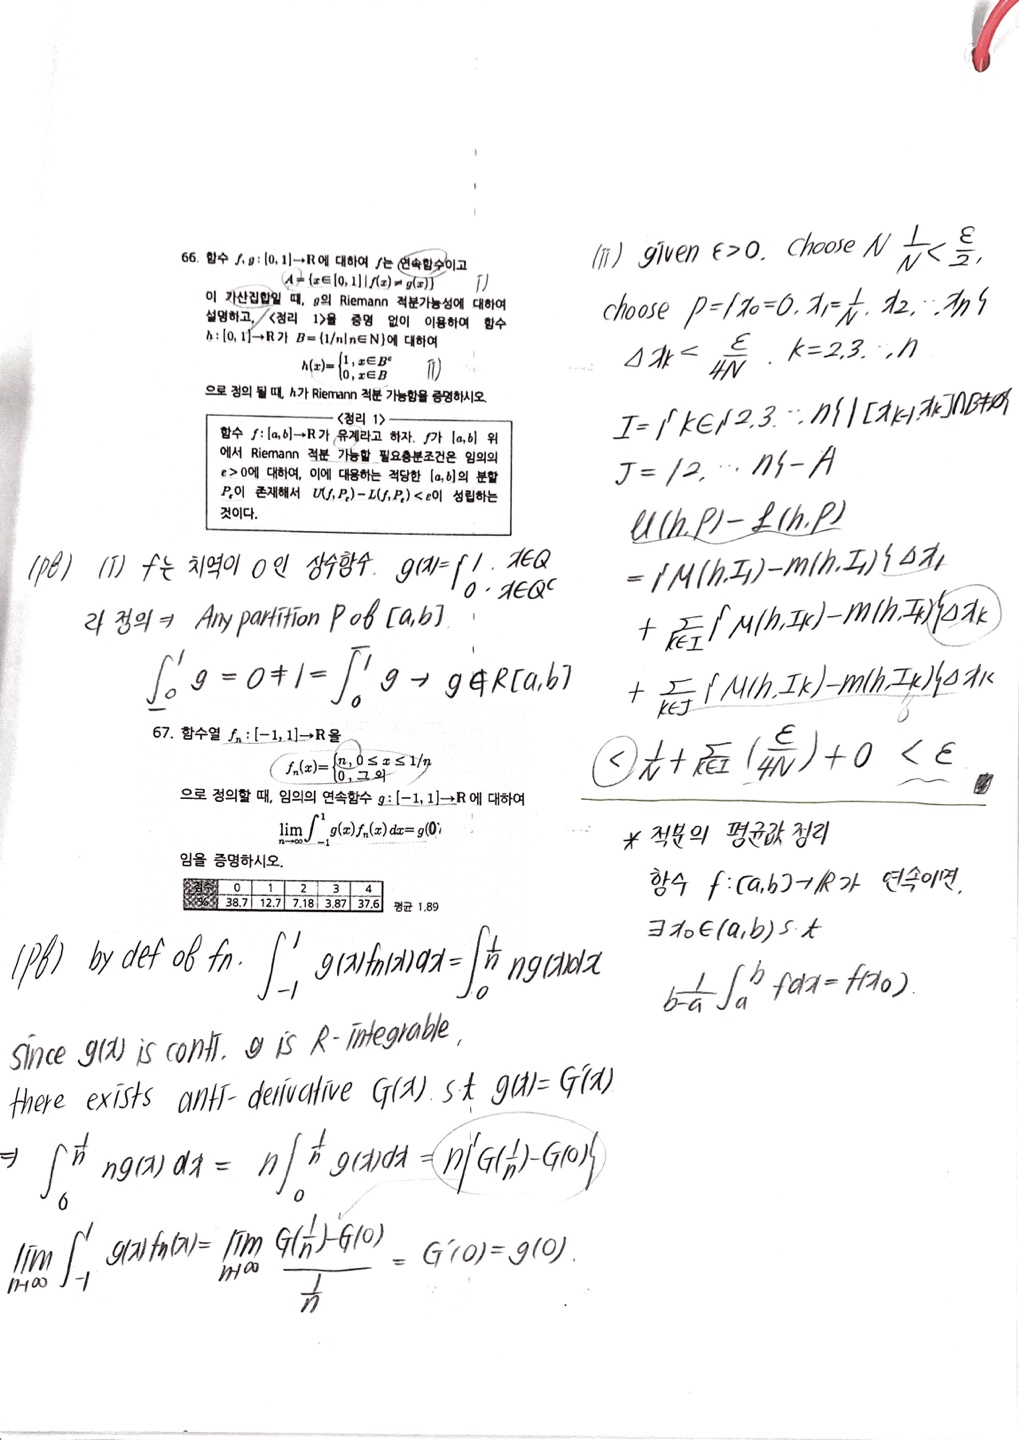 66. 함수 f, g : [0, 1]→R에 대하여 f는 연속함수이고
A = {x∈[0, 1] | f(x) ≠ g(x)} i)
이 가산집합일 때, g의 Riemann 적분가능성에 대하여
설명하고, <정리 1>을 증명 없이 이용하여 함수
h : [0, 1]→R가 B = {1/n | n∈N}에 대하여
h(x) = { 1, x∈Bᶜ
0, x∈B ii)
으로 정의 될 때, h가 Riemann 적분 가능함을 증명하시오.
<정리 1>
함수 f : [a, b]→R가 유계라고 하자. f가 [a, b] 위
에서 Riemann 적분 가능할 필요충분조건은 임의의
ε > 0에 대하여, 이에 대응하는 적당한 [a, b]의 분할
Pε이 존재해서 U(f, Pε) − L(f, Pε) < ε이 성립하는
것이다.
(pf) (i) f는 치역이 0인 상수함수. g(x) = { 1, x∈Q
0, x∈Qᶜ
라 정의 ⇒ Any partition P of [a,b]
∫₀¹ g = 0 ≠ 1 = ∫₀¹ g → g ∉ R[a,b]
67. 함수열 fₙ : [−1, 1]→R을
fₙ(x) = { n, 0 ≤ x ≤ 1/n
0, 그 외
으로 정의할 때, 임의의 연속함수 g : [−1, 1]→R에 대하여
lim n→∞ ∫₋₁¹ g(x)fₙ(x) dx = g(0)
임을 증명하시오.
점수 0 1 2 3 4
% 38.7 12.7 7.18 3.87 37.6 평균 1.89
(pf) by def of fn. ∫₋₁¹ g(x)fn(x)dx = ∫₀^(1/n) ng(x)dx
since g(x) is conti. g is R-integrable,
there exists anti-derivative G(x). s.t g(x) = G'(x)
⇒ ∫₀^(1/n) ng(x) dx = n∫₀^(1/n) g(x)dx = n{G(1/n)−G(0)}
lim n→∞ ∫₋₁¹ g(x)fn(x) = lim n→∞ (G(1/n)−G(0)) / (1/n) = G'(0) = g(0).
(ii) given ε>0. choose N 1/N < ε/2,
choose P = {x₀=0, x₁=1/N, x₂, ..., xn}
Δxk < ε/4N . k=2,3. ..., n
I = { k∈{2,3. ..., n} | [xk-1, xk]∩B≠∅}
J = {2, ... n} − A
U(h,P) − L(h,P)
= {M(h,I₁)−m(h,I₁)}Δx₁
+ Σ k∈I {M(h,Ik)−m(h,Ik)}Δxk
+ Σ k∈J {M(h,Ik)−m(h,Ik)}Δxk
0
< 1/N + Σ k∈I (ε/4N) + 0 < ε
* 적분의 평균값 정리
함수 f : [a,b]→R가 연속이면,
∃x₀∈(a,b) s.t
1/(b−a) ∫ₐᵇ fdx = f(x₀).